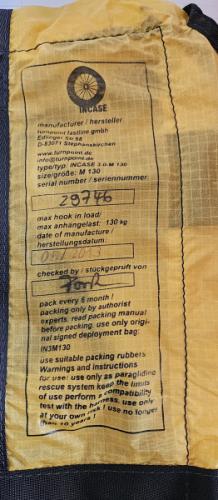 INCASE
manufacturer / hersteller
turnpoint fastline gmbh
Edlinger Str 58
D-83071 Stephanskirchen
www.turnpoint.de
info@turnpoint.de
type/typ: INCASE 3.0-M 130
size/größe: M 130
serial number / seriennummer
29746
max hook in load/
max anhängelast: 130 kg
date of manufacture /
herstellungsdatum:
checked by / stückgeprüft von
pack every 6 month /
packing only by authorist
experts. read packing manual
before packing. use only origi-
nal signed deployment bag:
IN3M130
use suitable packing rubbers
Warnings and instructions
for use: use only as paragliding
rescue system keep the limits
of use perform a compatibility
test with the harness. use only
at your own risk / use no longer
than 10 years /